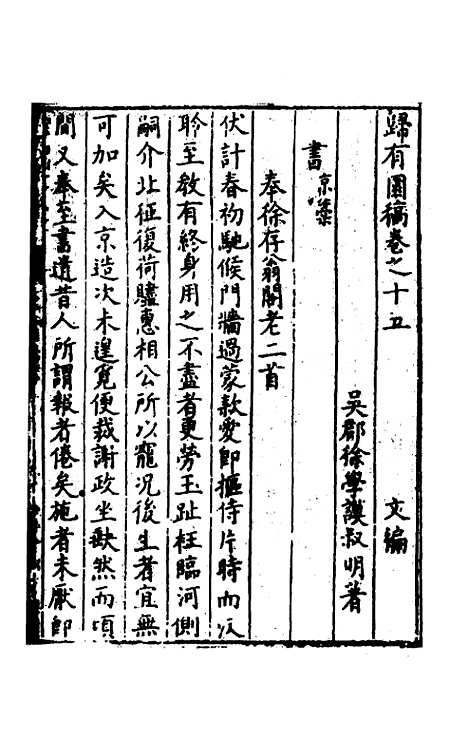 歸有園稿卷之十五 文編
吳郡徐學謨叔明著
書 京藁
奉徐存翁閣老二首
伏計春初馳候門墻過蒙款愛即摳侍片時而汉
聆至教有終身用之不盡者更勞玉趾枉臨河側
嗣介北征復荷驢惠相公所以寵況後生者宜無
可加矣入京造次未遑覓便裁謝政坐歉然而頃
間又奉至書遺昔人所謂報者倦矣施者未厭即